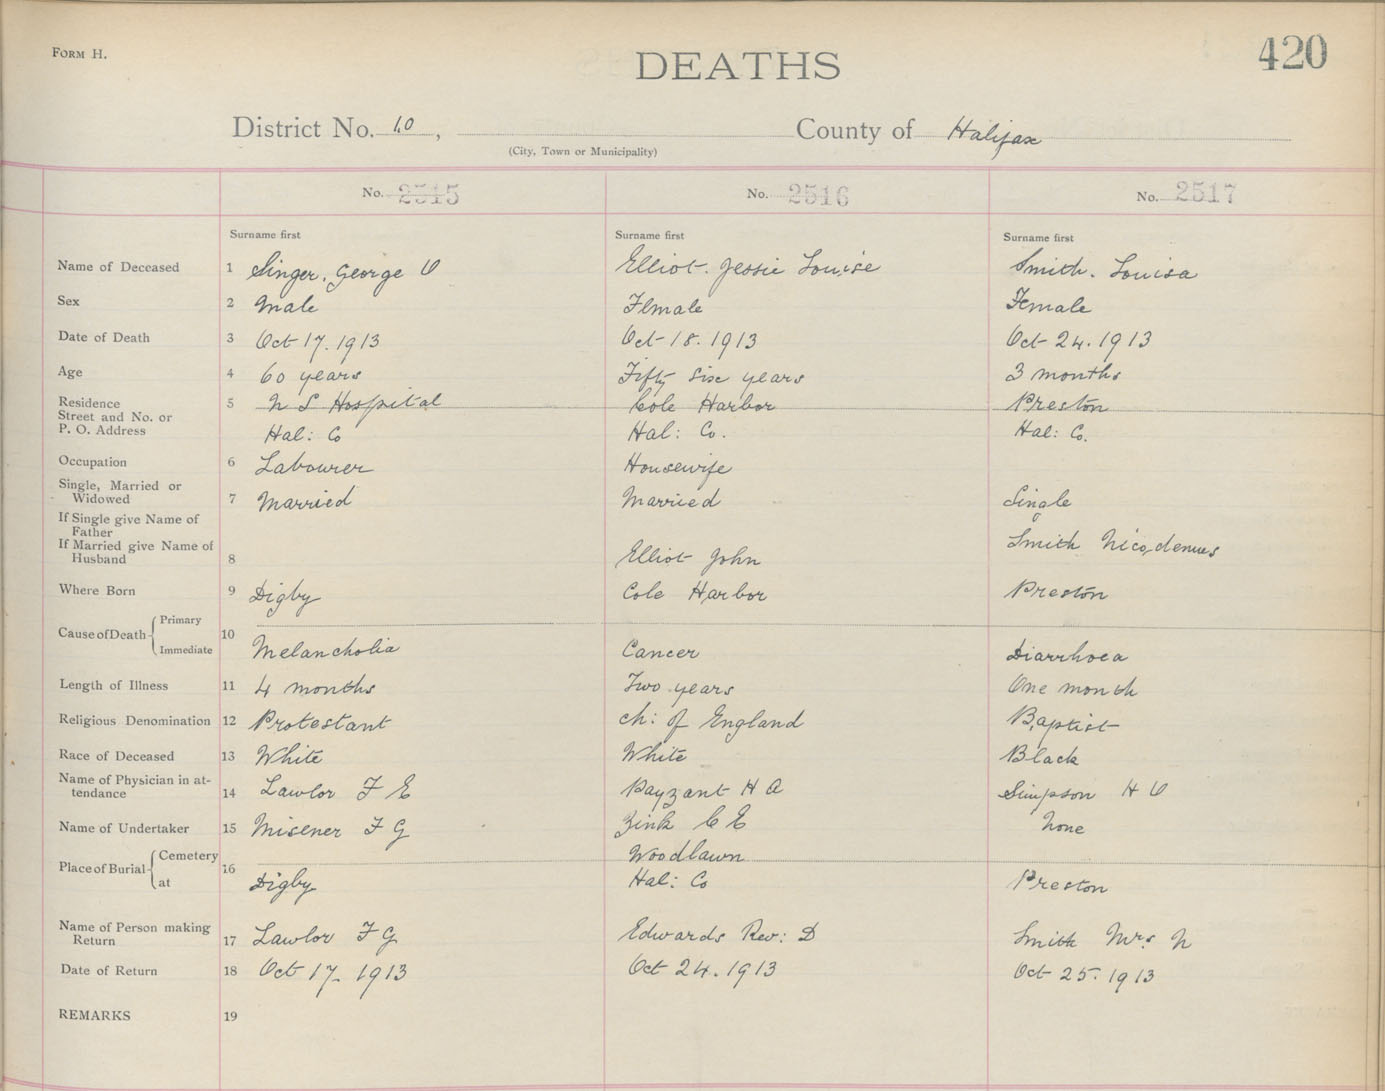 Form H.
DEATHS
420
District No. 10, County of Halifax
(City, Town or Municipality)
No. 2515 No. 2516 No. 2517
Surname first Surname first Surname first
Name of Deceased 1 Singer, George V Elliot. Jessie Louise Smith. Louisa
Sex 2 Male Flmale Female
Date of Death 3 Oct 17. 1913 Oct-18. 1913 Oct 24. 1913
Age 4 60 years Fifty Six years 3 months
Residence 5 N S Hospital Cole Harbor Preston
Street and No. or
P. O. Address Hal: Co Hal: Co. Hal: Co.
Occupation 6 Labourer Housewife
Single, Married or
Widowed 7 Married Married Single
If Single give Name of
Father Smith Nicodemus
If Married give Name of
Husband 8 Elliot John
Where Born 9 Digby Cole Harbor Preston
Cause of Death Primary
10
Immediate Melancholia Cancer Diarrhoea
Length of Illness 11 4 months Two years One month
Religious Denomination 12 Protestant ch: of England Baptist
Race of Deceased 13 White White Black
Name of Physician in at-
tendance 14 Lawlor F E Payzant H A Simpson H V
Name of Undertaker 15 Misener F G Zink C E None
Place of Burial Cemetery Woodlawn
16
at Digby Hal: Co Preston
Name of Person making
Return 17 Lawlor F G Edwards Rev: D Smith Mrs. N
Date of Return 18 Oct 17. 1913 Oct 24. 1913 Oct 25. 1913
REMARKS 19